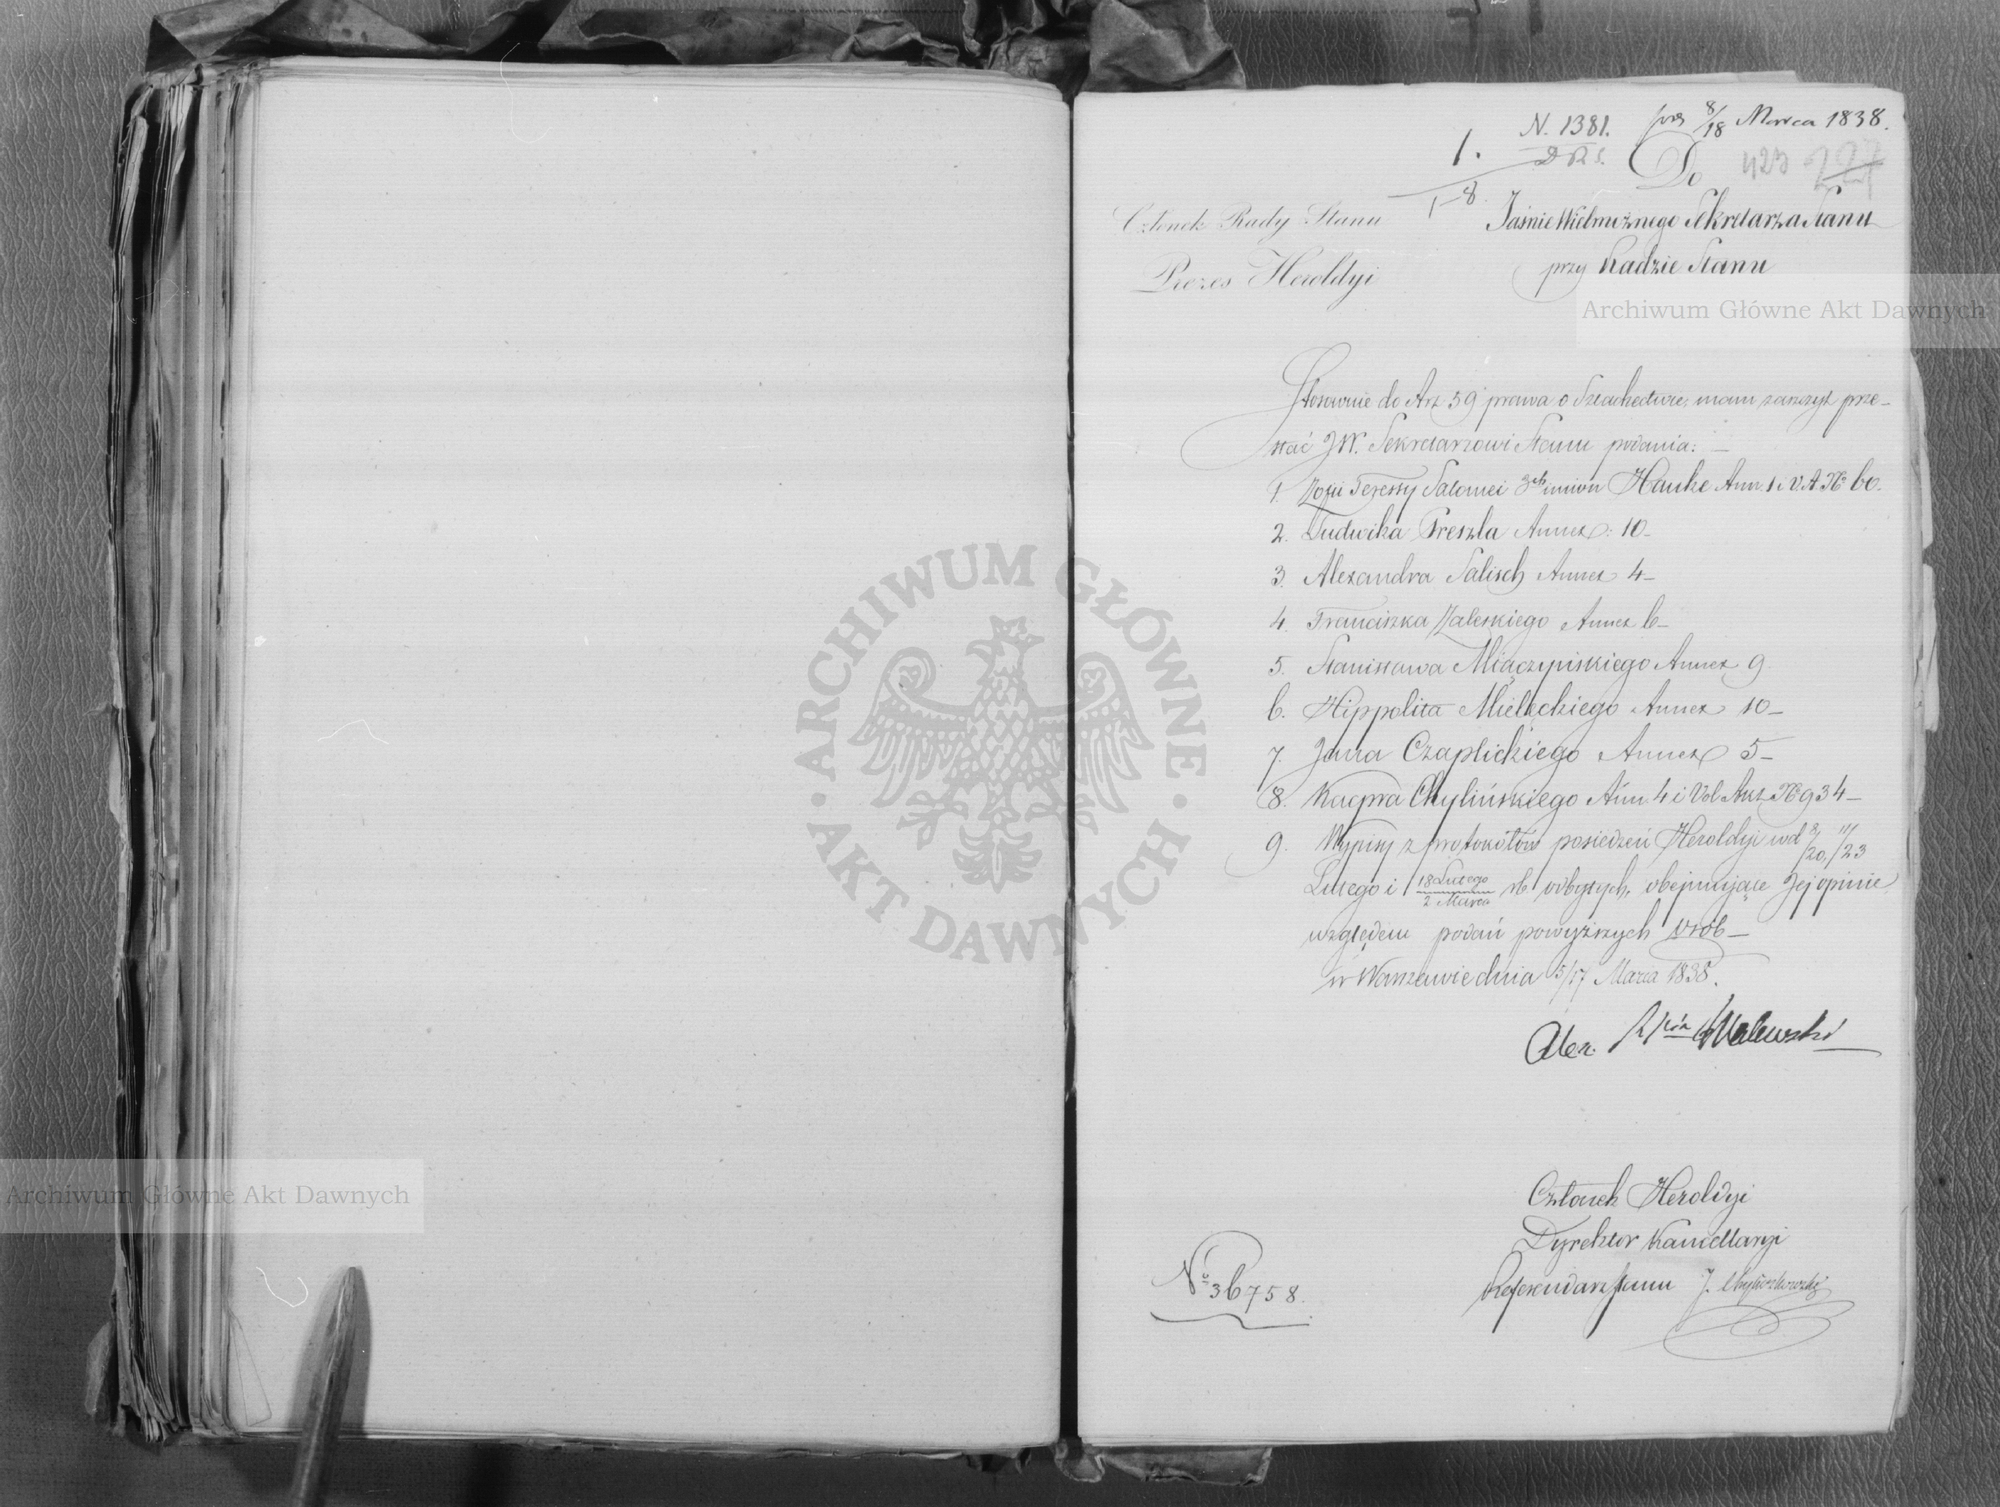 N. 1381.
8/18 Marca 1838.
1.
D R S.
1-8
Do
423 227
Członek Rady Stanu
Prezes Heroldyi
Jaśnie Wielmożnego Sekretarza Stanu
przy Radzie Stanu
Archiwum Główne Akt Dawnych
Stosownie do Art 59 prawa o Szlachectwie, mam zaszczyt prze-
słać JW. Sekretarzowi Stanu podania:
1. Zofii Teressy Salomei 3ch imion Hauke Ann. 1 i V. A. No 60.
2. Ludwika Preszla Annex: 10-
3. Alexandra Salisch Annex 4-
4. Franciszka Zaleskiego Annex 6-
5. Stanisława Miączyńskiego Annex 9
6. Hippolita Mielęckiego Annex 10-
7. Jana Czaplickiego Annex 5-
8. Kacpra Chylińskiego Ann. 4 i Vol Akt No 934-
9. Wypisy z protokółów posiedzeń Heroldyi w d 8/20, 11/23
Lutego i 18 Lutego/2 Marca rb odbytych, obejmujące Jej opinie
względem podań powyższych osób-
w Warszawie dnia 5/17 Marca 1838.
Alex. Walewski
Członek Heroldyi
Dyrektor Kancellaryi
Referendarz Stanu J.
No 36758.
ARCHIWUM GŁÓWNE
AKT DAWNYCH
Archiwum Główne Akt Dawnych